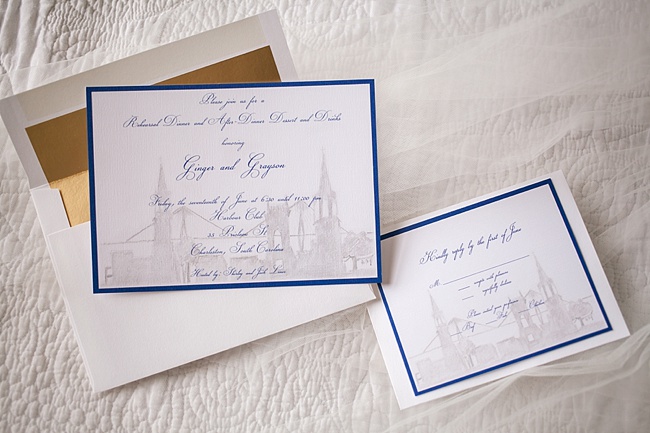 Please join us for a
Rehearsal Dinner and After-Dinner Dessert and Drinks
honoring
Ginger and Grayson
Friday, the seventeenth of June at 6:30 until 11:00 pm
Harbour Club
35 Prioleau St
Charleston, South Carolina
Hosted by: Shirley and Jack
Kindly reply by the first of June
M
accepts with pleasure
regretfully declines
Please initial your preference
Beef Fish Chicken